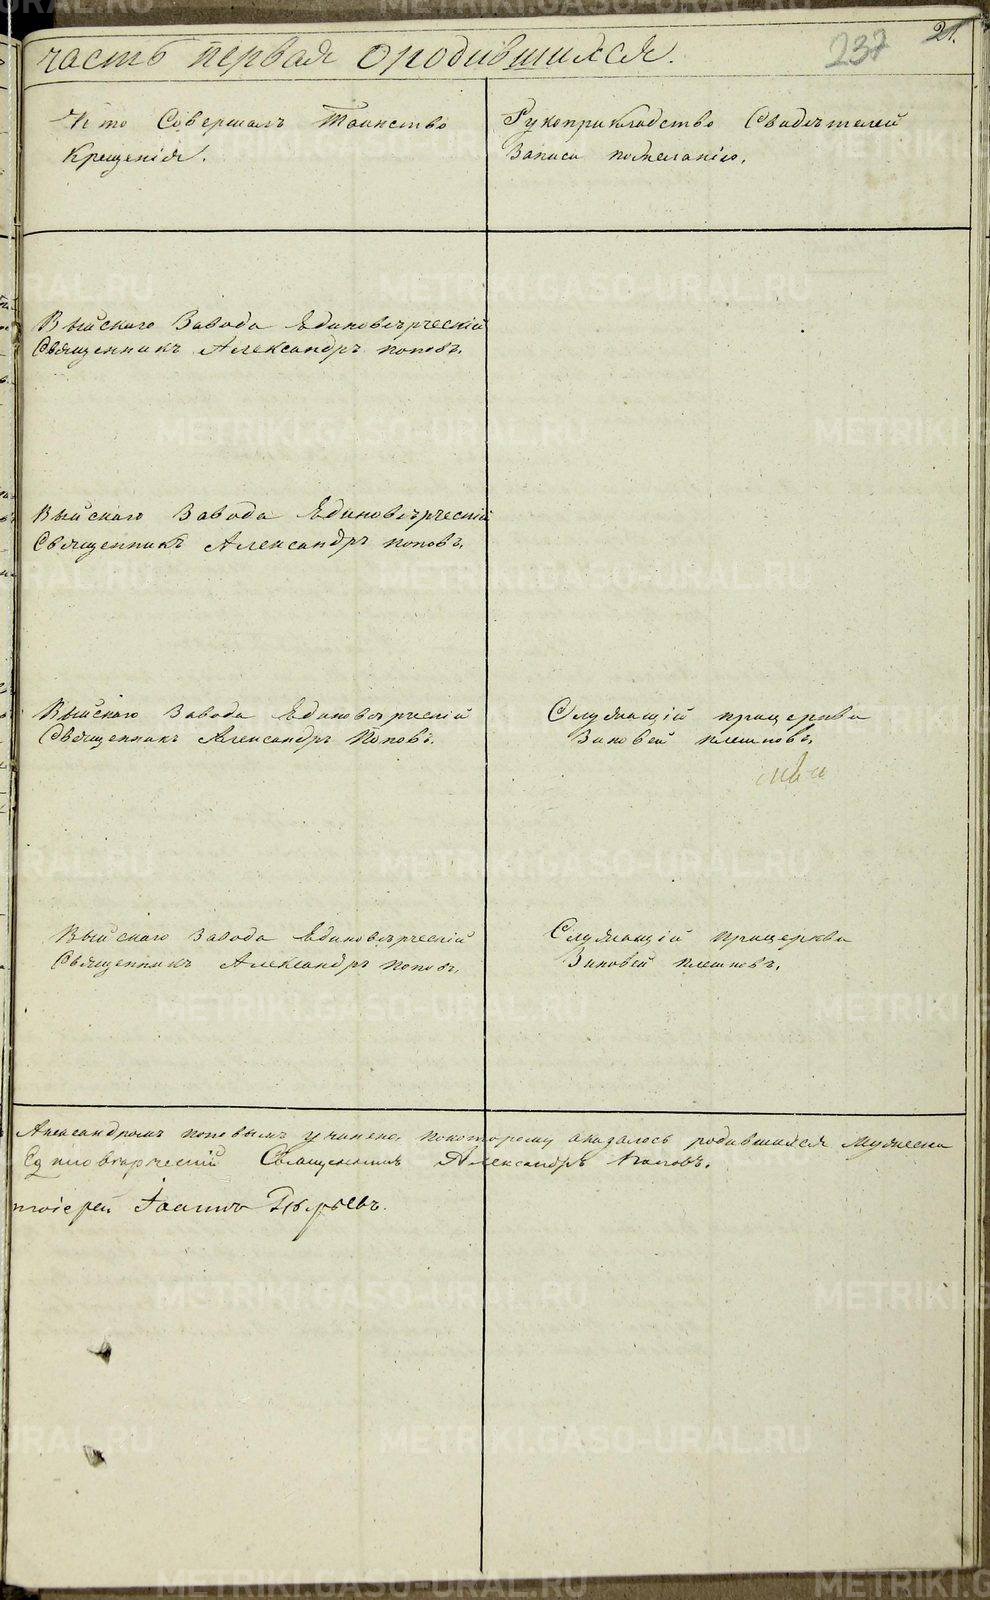 21.
237
часть первая о родившихся.
Кто Совершалъ Таинство
Крещенія.
Рукоприкладство Свидѣтелей
Записи пожеланію.
Выйскаго Завода Единовѣрческій
Священникъ Александръ Поповъ.
Выйскаго Завода Единовѣрческій
Священникъ Александръ Поповъ.
Выйскаго Завода Единовѣрческій
Священникъ Александръ Поповъ.
Служащій прицеркви
Зиновей Плешковъ.
Выйскаго Завода Единовѣрческій
Священникъ Александръ Поповъ.
Служащій прицеркви
Зиновей Плешковъ.
Александромъ Поповымъ учинена, покоторому оказалось родившихся мужеска
Единоверческій Священникъ Александръ Поповъ.
Іоаннъ
METRIKI.GASO-URAL.RU